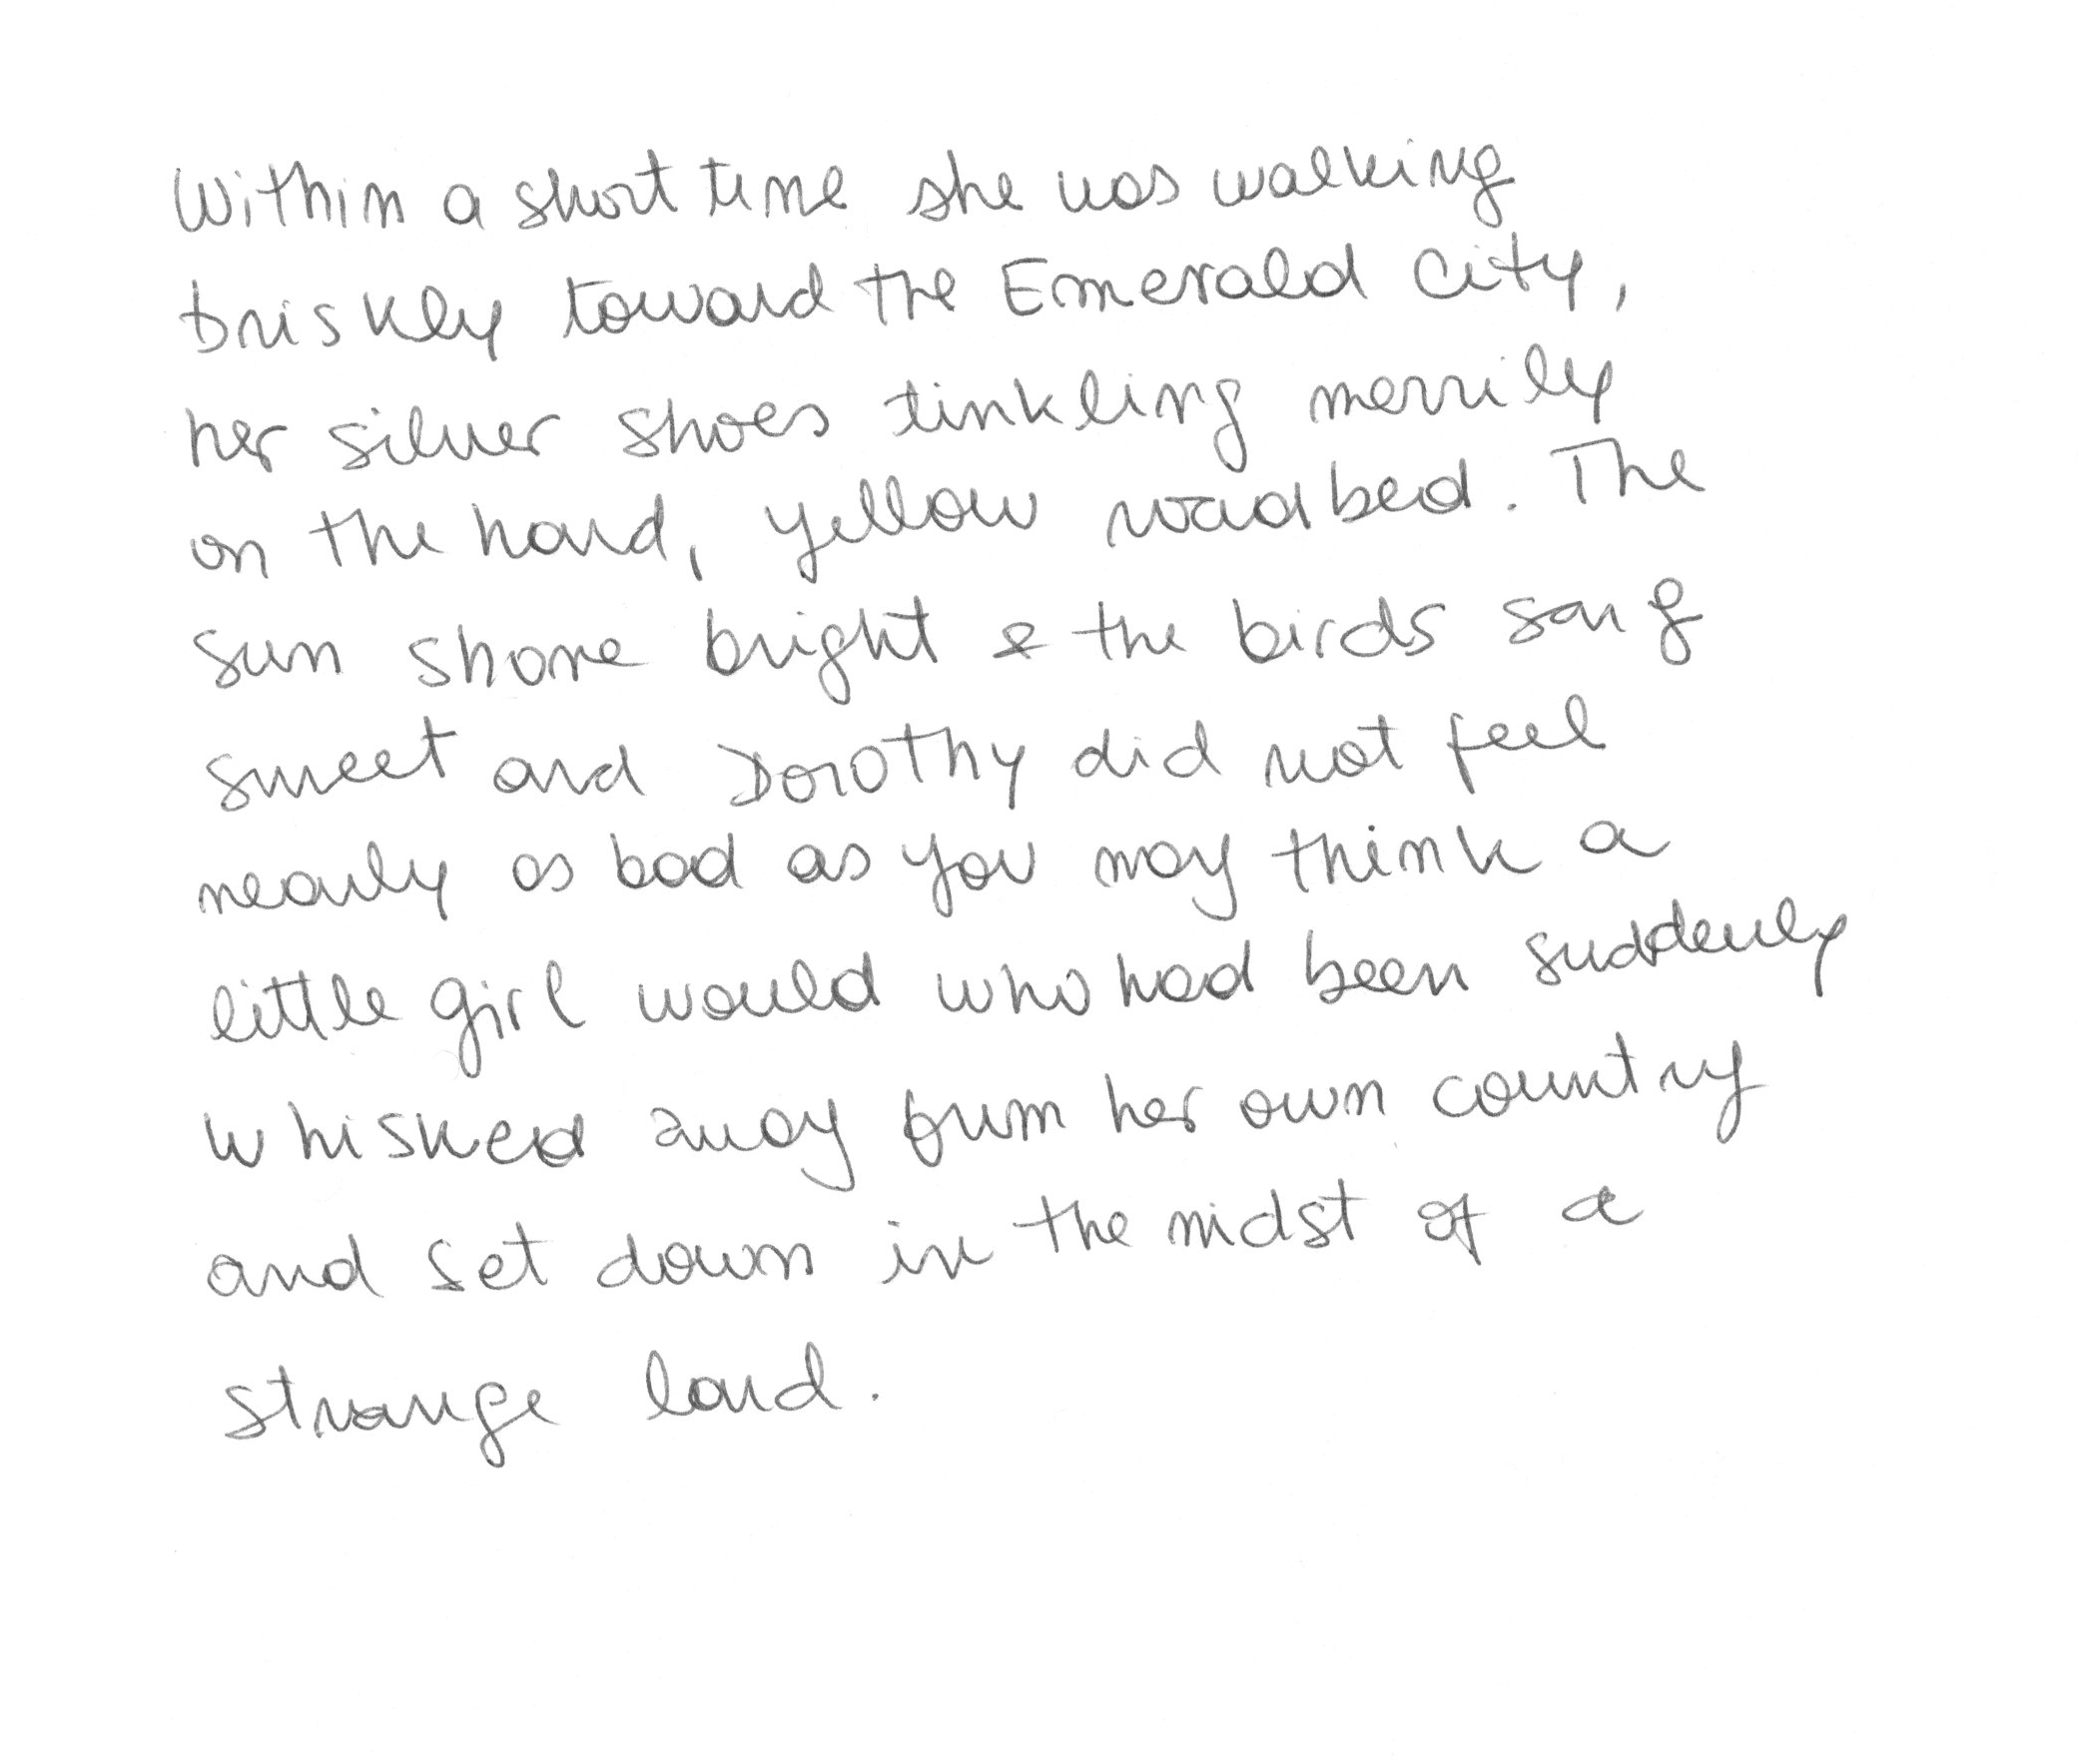 Within a short time she was walking
briskly toward the Emerald City,
her silver shoes tinkling merrily
on the hard, yellow roadbed. The
sun shone bright & the birds sang
sweet and Dorothy did not feel
nearly as bad as you may think a
little girl would who had been suddenly
whisked away from her own country
and set down in the midst of a
strange land.